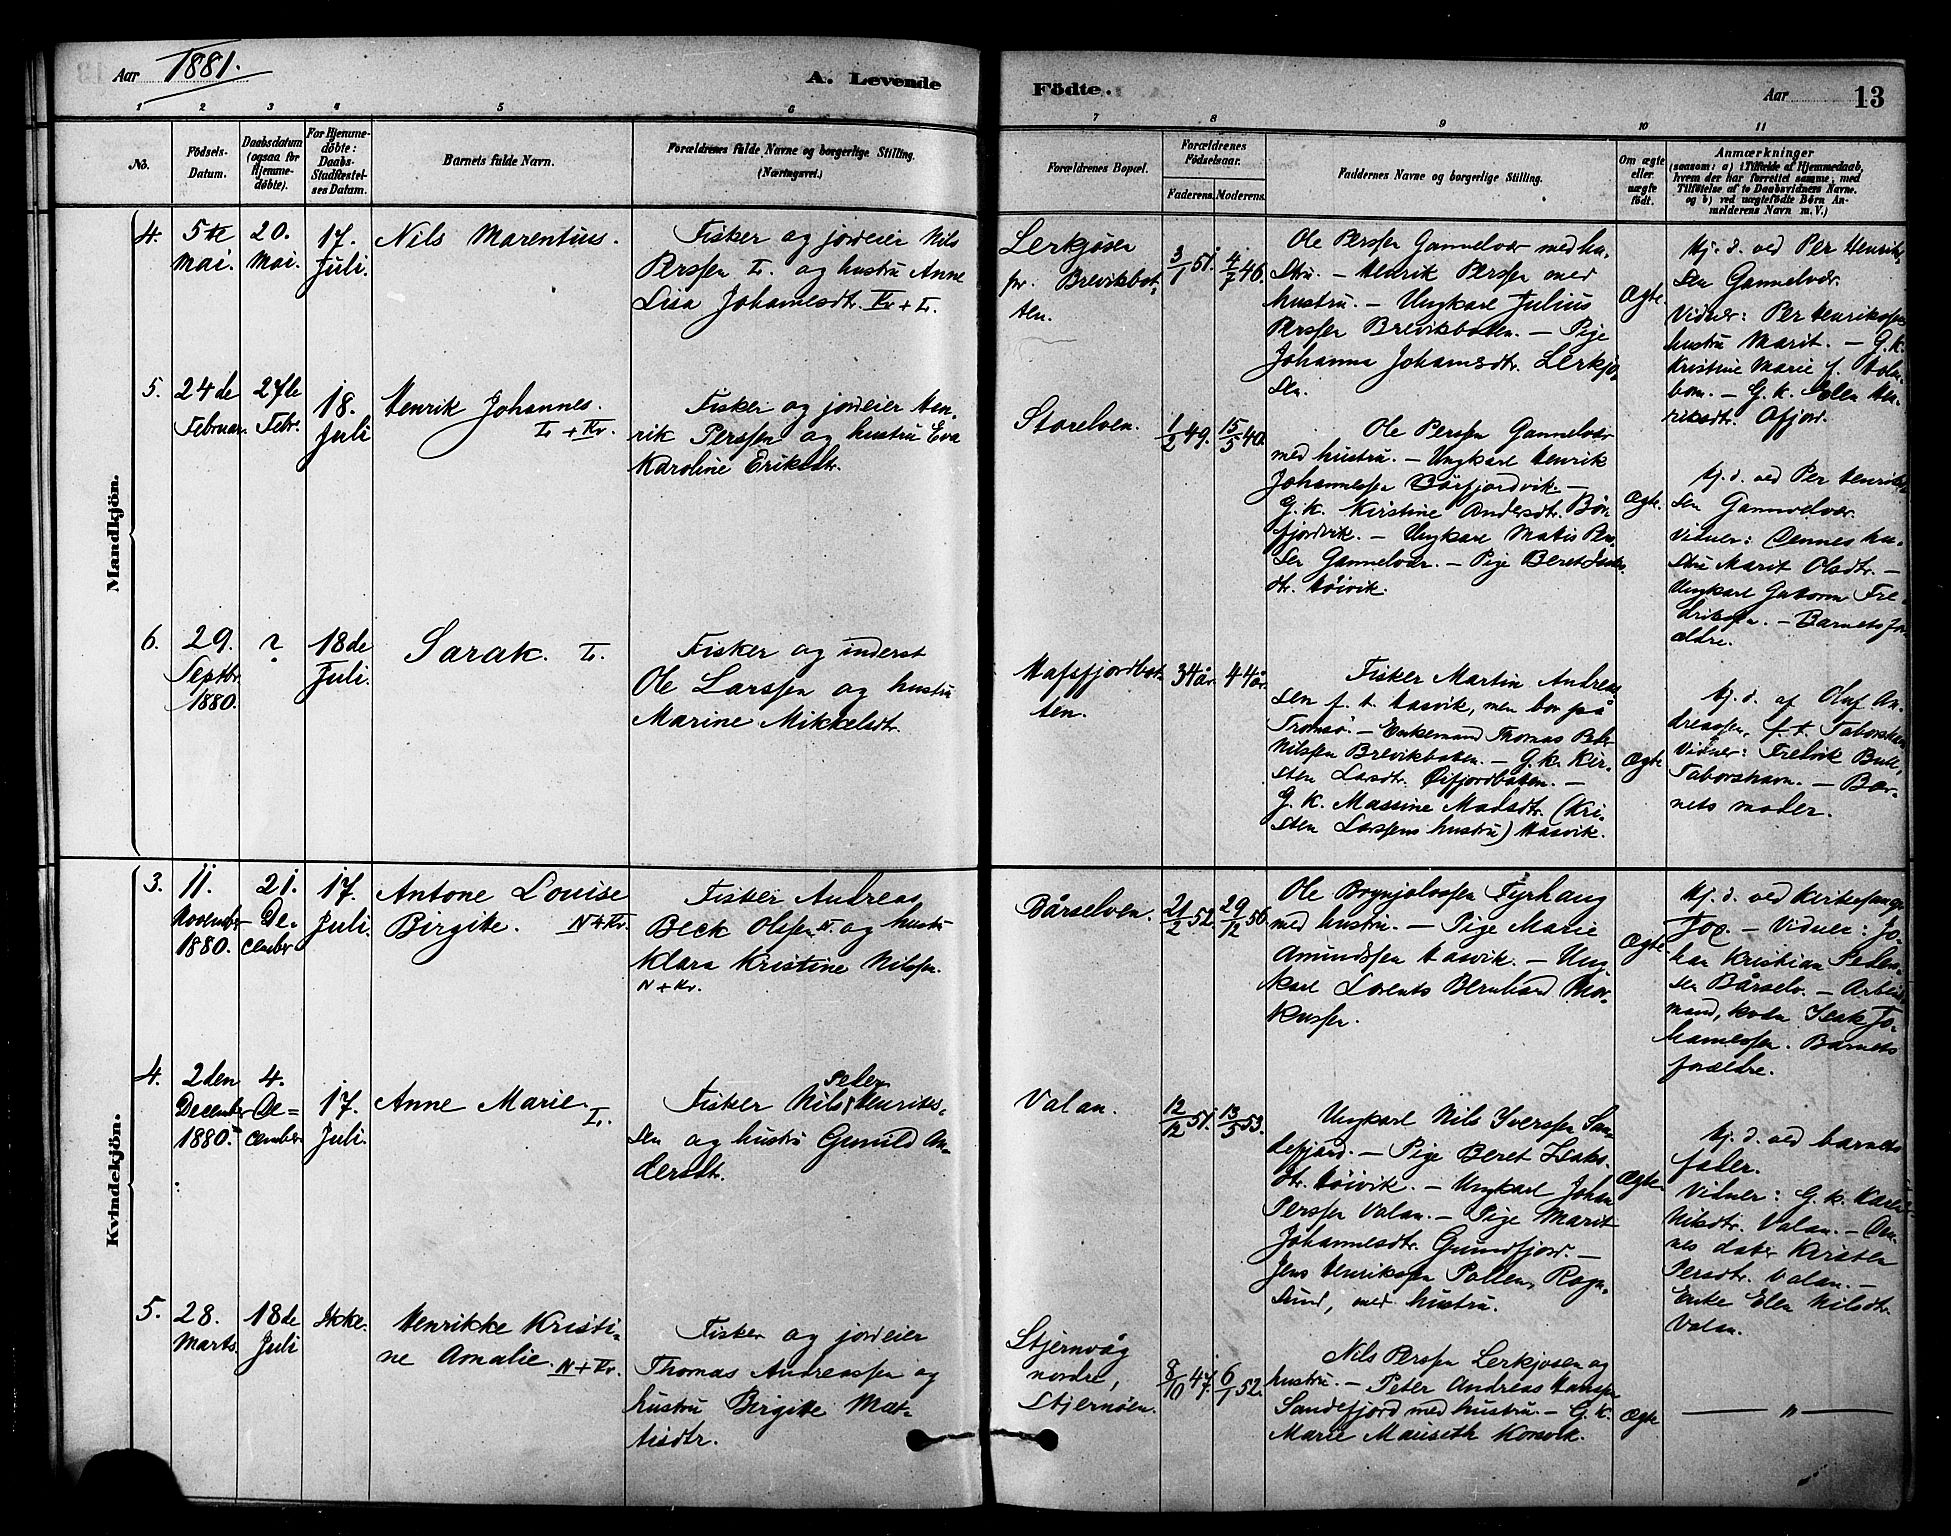 Aar 1881.
A. Levende
Födte.
Aar
13
1
2
3
4
5
6
7
8
9
10
11
No.
Födsels-
Datum.
Daabsdatum
(ogsaa for
Hjemme-
døbte).
For Hjemme-
døbte:
Daabs-
Stadfæstel-
ses Datum.
Barnets fulde Navn.
Forældrenes fulde Navne og borgerlige Stilling.
(Næringsvei.)
Forældrenes Bopæl.
Forældrenes
Födselsaar.
Faderens.
Moderens.
Faddernes Navne og borgerlige Stilling.
Om ægte
eller
uægte
født.
Anmærkninger
(saasom: a) i Tilfælde af Hjemmedaab,
hvem der har forrettet samme, med
Tilföielse af to Daabsvidners Navne.
og b) ved uægtefødte Börn An-
melderens Navn m. V.)
Mandkjön.
4.
5te
Mai.
20.
Mai.
17.
Juli.
Nils Marentius.
Fisker og jordeier Nils
Perssen L. og hustru Anne
Lisa Johannesdtr. Kv + L.
Lerkjosen
pr. Brevikbot-
ten.
3/1 51.
4/7 46.
Ole Perssen Gammelvær med hu-
stru. – Henrik Perssen med
hustru. – Ungkarl Julius
Perssen Brevikboten. – Pige
Johanna Johannesdtr. Lerkjo-
sen.
Ægte.
Hj. d. ved Per Henrik-
sen Gammelvær.
Vidner: Per Henriksens
hustru Marit. – G. k.
Kristine Marie f. Holm-
bom. – G. k. Ellen Hen-
riksdtr. Ofjord.
5.
24de
Februar.
27de
Febr.
18.
Juli
Henrik Johannes.
L + Kv.
Fisker og jordeier Hen-
rik Perssen og hustru Eva
Karoline Eriksdtr.
Storelven.
1/2 49.
15/5 40.
Ole Perssen Gammelvær
med hustru. – Ungkarl Henrik
Johannessen Börfjordvik –
G. k. Kirstine Andersdtr. Bör-
fjordvik. – Ungkarl Matis Per-
sen Gammelvær. – Pige Beret Isaks-
dtr. Höivik.
Ægte.
Hj. d. ved Per Henrik-
sen Gammelvær.
Vidner: Dennes hu-
stru Marit Olsdtr. –
Ungkarl Guttorm Fre-
driksen. – Barnets for-
ældre.
6.
29.
Septbr.
1880.
?
18de
Juli.
Sarak. L.
Fisker og inderst
Ole Larssen og hustru
Marine Mikkelsdtr.
Hafsfjordbot-
ten.
34 år.
44 år.
Fisker Martin Andreas-
sen f. t. Hasvik, men bor på
Tromsö. – Enkemand Thomas Peter
Nilssen Brevikboten. – G. k. Kir-
sten Larsdtr. Öifjordboten. –
G. k. Massine Madsdtr. (Kri-
sten Larssens hustru) Hasvik.
Ægte
Hj. d. af Oluf An-
dreassen, f. t. Taborshavn.
Vidner: Fredrik Bull,
Taborshavn. – Bar-
nets moder.
Kvindekjön.
3.
11.
November
1880.
21.
De-
cember
17.
Juli.
Antone Louise
Birgitte. N + Kv.
Fisker Andreas
Beck Olssen N. og hustru
Klara Kristine Nilssen.
N + Kv.
Bårselven.
21/2 52.
29/12 56.
Ole Brynjolvssen Fyrhaug
med hustru. – Pige Marie
Amundssen Hasvik. – Ung-
karl Lorents Bernhard Mar-
kussen.
Ægte.
Hj. d. ved kirkesanger
Fox. – Vidner: Jo-
han Kristian Peder-
sen Bårselv. – Arbeids-
mand, kvæn Isak Jo-
hannessen. Barnets
forældre.
4.
2den
December
1880.
4.
De-
cember
17.
Juli.
Anne Marie. L.
Fisker Nils Peder Henrik-
sen og hustru Gunild An-
dersdtr.
Valan.
12/12 51.
13/5 53.
Ungkarl Nils Iverssen San-
defjord. – Pige Beret Isaks-
dtr. Höivik. – Ungkarl Johan
Perssen Valan. – Pige Marit
Johannesdtr. Grundfjord. –
Jens Henriksen Pollen, Rogn-
sund, med hustru.
Ægte
Hj. d. ved barnets
fader.
Vidner: G. k. Karen
Nilsdtr. Valan. – Den-
nes dater Kirsten
Persdtr. Valan. –
Enke Elen Nilsdtr.
Valan.
5.
28.
Marts
18de
Juli
Ikke.
Henrikke Kristi-
ne Amalie. N + Kv.
Fisker og jordeier
Thomas Andreassen og
hustru Birgitte Mat-
tisdtr.
Stjernvåg
nordre,
Stjernöen.
8/10 47.
6/1 52.
Nils Perssen Lerkjosen og
hustru. – Peter Andreas Hanssen
Sandefjord med hustru. – G. k.
Marie Mauseth Korsvik.
Ægte
– " –